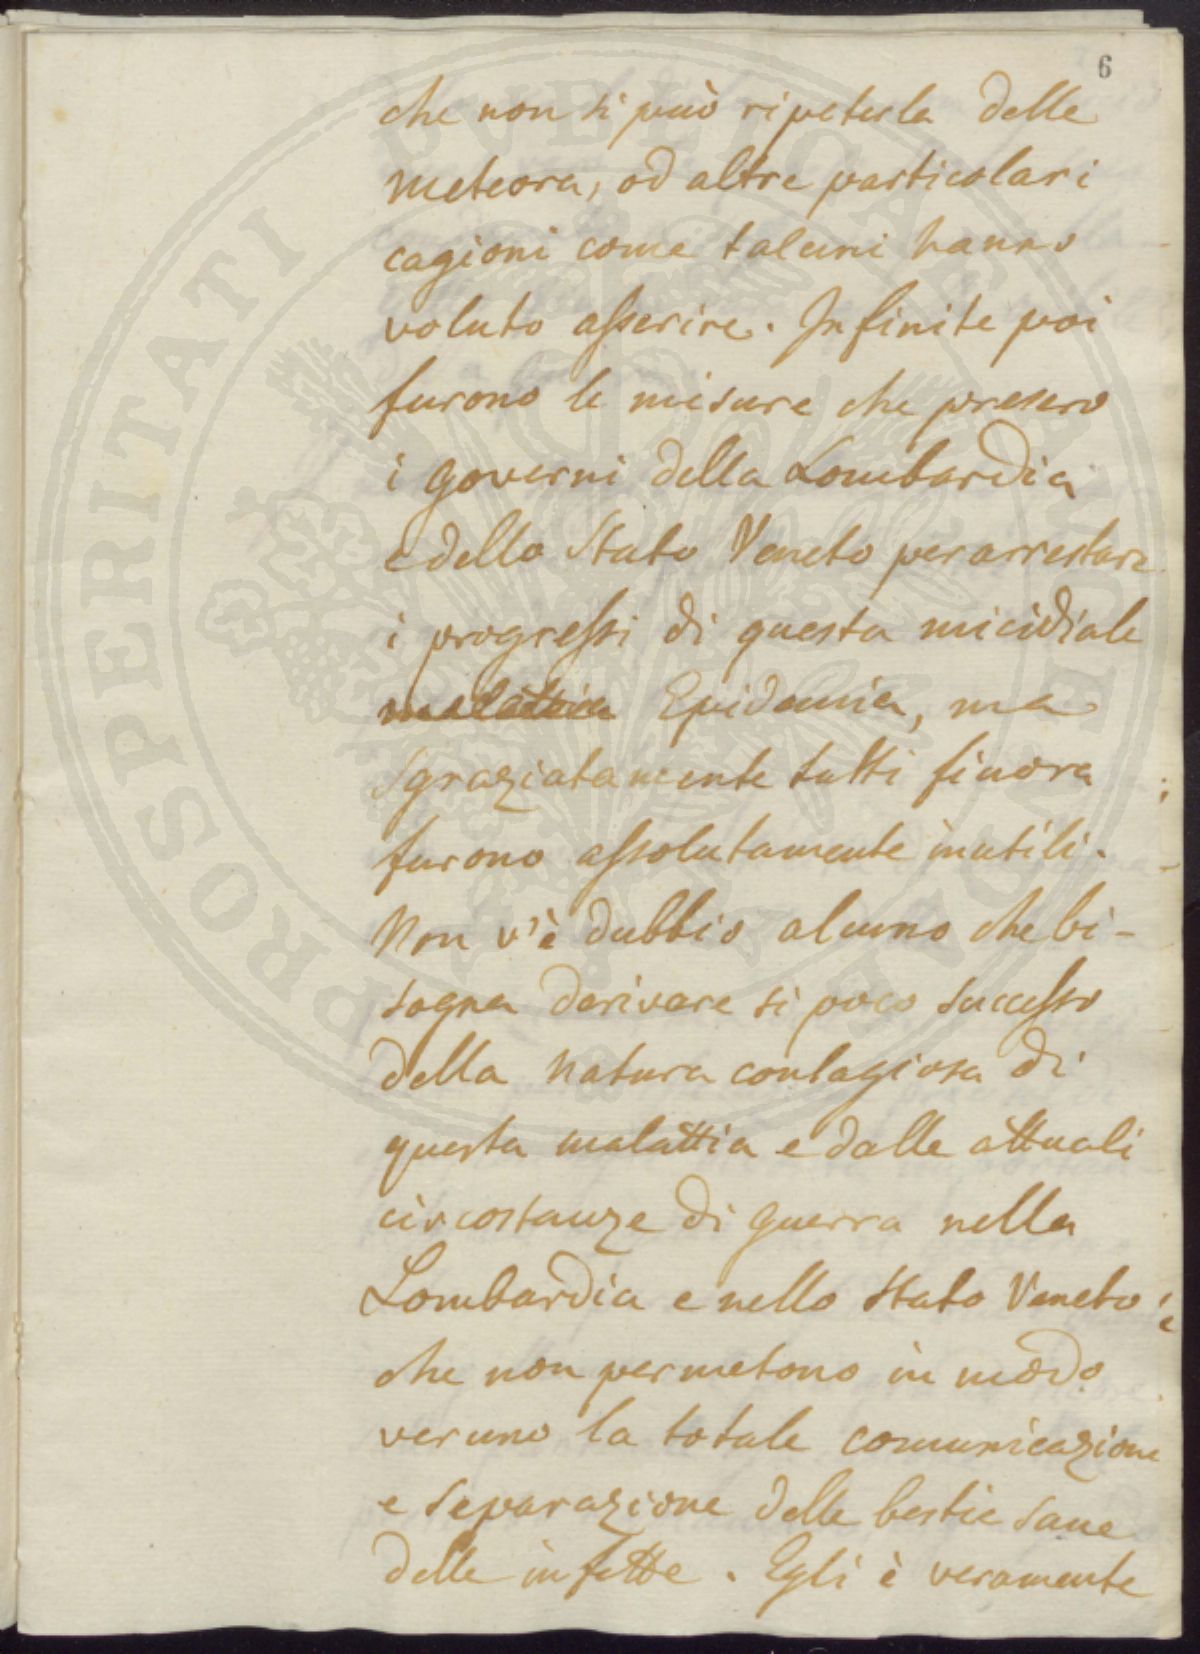 6
che non si può ripeterla delle
meteora, od altre particolari
cagioni come taluni hanno
voluto asserire. Infinite poi
furono le misure che presero
i governi della Lombardia
e dello Stato Veneto per arrestare
i progressi di questa micidiale
malattia Epidemia, ma
sgraziatamente tutti finora
furono assolutamente inutili.
Non v'è dubbio alcuno che bi-
sogna derivare si poco successo
della natura contagiosa di
questa malattia e dalle attuali
circostanze di guerra nella
Lombardia e nello Stato Veneto
che non permetono in modo
veruno la totale comunicazione
e separazione delle bestie sane
delle infette. Egli è veramente
PROSPERITATI PVBLICAE AVGENDAE